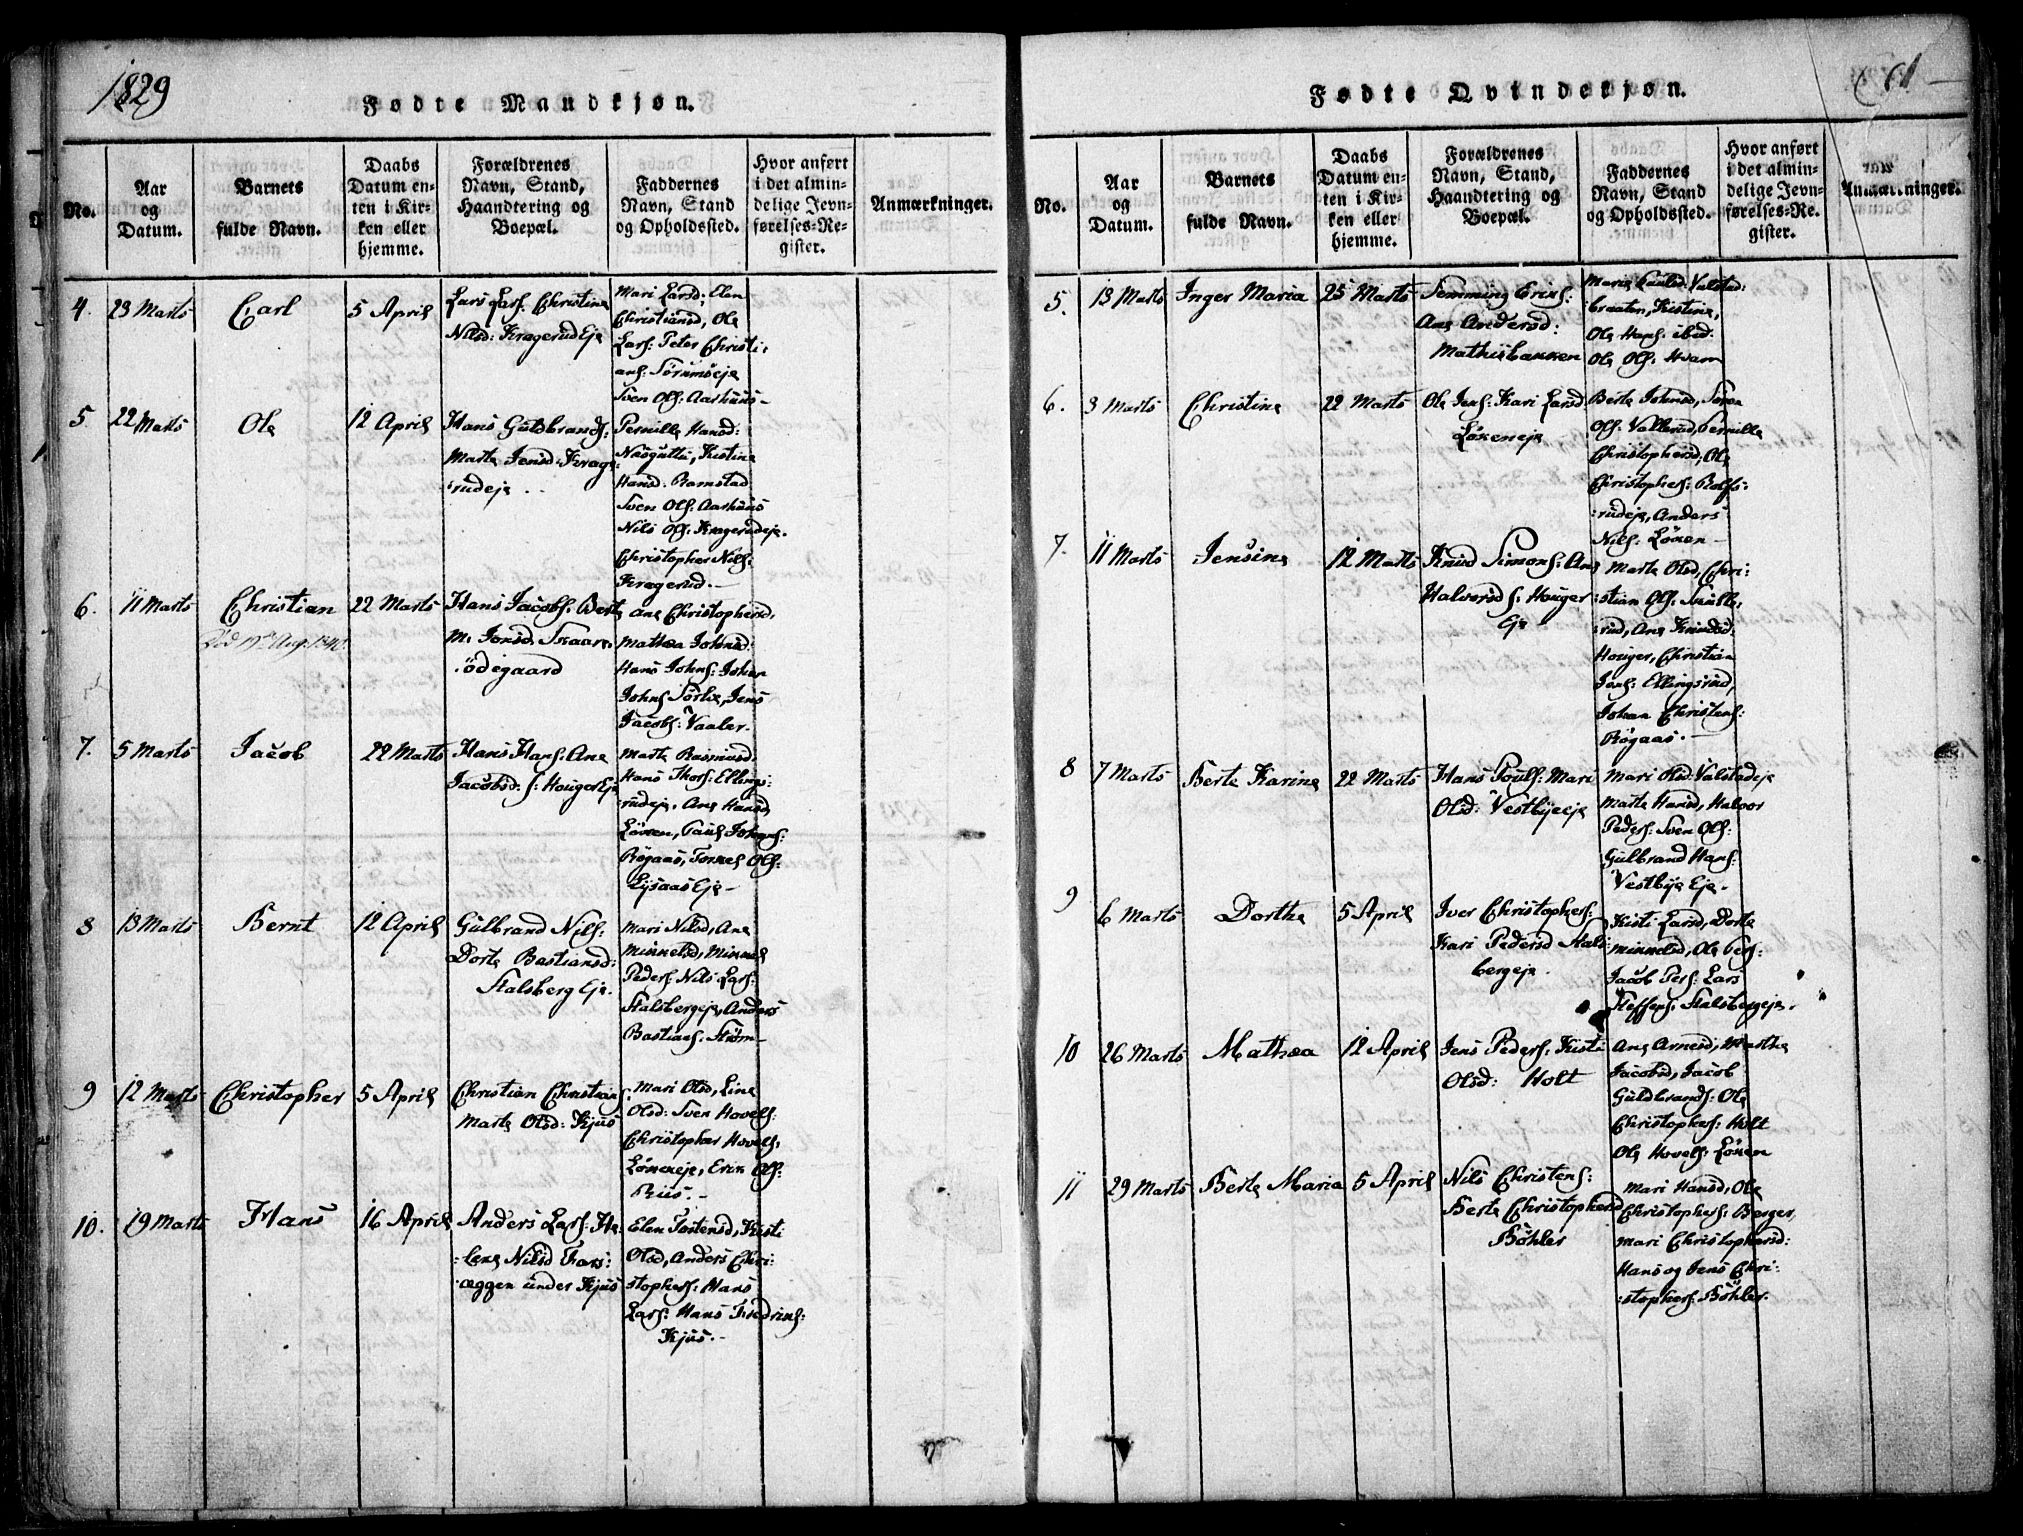 1829
Fødte Mandkjøn.
No.
Aar
og
Datum.
Barnets
fulde Navn.
Daabs
Datum en-
ten i Kir-
ken eller
hjemme.
Forældrenes
Navn, Stand,
Haandtering og
Boepæl.
Faddernes
Navn, Stand
og Opholdssted.
Hvor anført
i det almin-
delige Jevn-
førelses-Re-
gister.
Anmærkninger.
4. 23 Marts Carl 5 April
Lars Lars: Christine
Nilsd: Kragerud Eje
Mari Larsd; Elen
Christiansd, Ole
Lars: Peter Christi:
ans: Sørumseje
Sven Ols: Aarhuus -
5 22 Marts Ole 12 April
Hans Guldbrands:
Marte Jensd: Krage
:rudeje . .
Pernille Hansd:
Kistine
Hansd: Ramstad
Sven Ols: Aarhuus
Nils Ols: Kragerudeje.
Christopher Nils:
Kragerud. -
6. 11 Marts Christian 22 Marts
Død 19de Aug: 1840
Hans Jacobs: Berte
M: Jonsd Skaare
:ødegaard
ane Christophersd,
Mathea Johnsd:
Hans Johns: Johan
Johns Sørlie, Jens
Jacobs: Vaaler.
7. 5 Marts Jacob 22 Marts
Hans Hans: Ane
Jacobsd: S: Houger Eje
Marte Rasmusd:
Hans Thors: Ellings:
:rudeje, Ane Hansd,
Løken, Paul Johans:
Røgaas, Torkel Ols:
Lysaas Eje -
8 13 Marts Bernt 12 April
Gulbrand Nils:
Dorte Bastiansd:
Stalsberg Eje.
Mari Nilsd, Ane
Minnelsd, Minnel
Peders: Nils Lars:
Stalsbergeje, Anders
Bastians: Strøm -
9 12 Marts Christopher 5 April
Christian Christians
Marte Olsd: Kjus
Mari Olsd, Line
Olsd: Sven Hovels:
Christopher Hovels:
Løkeneje, Erik Ols:
Riis. -
10. 19 Marts Hans 16 April
Anders Lars: He
:lene Nilsd Fars:
:æggen under Kjus
Elen Tostensd, Kisti
Olsd, Anders Chri:
stophers: Hans
Lars: Hans Fredriks:
Kjus. -
61
Fødte Qvindekjøn.
No.
Aar
og
Datum.
Barnets
fulde Navn.
Daabs
Datum en-
ten i Kir-
ken eller
hjemme.
Forældrenes
Navn, Stand,
Haandtering og
Boepæl.
Faddernes
Navn, Stand
og Opholdssted.
Hvor anført
i det almin-
delige Jevn-
førelses-Re-
gister.
Anmærkninger.
5. 13 Marts Inger Maria 25 Marts
Semming Eriks:
Ane Andersd:
Mathisbakken
Marie Paulsd: Valstad:
braaten, Kistine,
Ole Hans: ibid.
Ole Ols: Hvam
6. 3 Marts Christine 22 Marts
Ole Jens: Kari Larsd
Løkeneje
Berte Johnsd,
Ols: Vallerud, Pernille
Christophersd; Ole
Christophers: Rolfs:
:rudeje, Anders
Nils: Løken -
7. 11 Marts Jensine 12 Marts
Knud Simons: Ane
Halvorsd S: Houger
Eje
Marte Olsd, Chri:
:stian Ols: Smille:
:rud, Ane Knudsd:
Houger, Christian
Jens: Ellingsrud,
Johan Christens:
Røgaas. -
8 7 Marts Berte Karine 22 Marts
Hans Pouls: Mari
Olsd: Vestbyeeje
Mari Olsd: Valstadeje
Marte Hansd, Halvor
Peders: Sven Ols:
Gulbrand Hans:
Vestbye Eje.
9 6 Marts Dorthe 5 April
Iver Christophers:
Kari Pedersd Stals:
bergeje.
Kisti Larsd, Dorte
Minnelsd, Ole Pers:
Jacob Pers: Lars
Steffens: Stalsbergeje.
10 26 Marts Mathea 12 April
Jens Peders: Kisti
Olsd: Holt
Ane Arnesd, Marthe
Jacobsd, Jacob
Guldbrands: Ole
Christophers: Holt
Ole Hovels: Løken
11 29 Marts Berte Maria 5 April
Nils Christens:
Berte Christophersd
Bøhler
Mari Hansd, Ole
Christophers: Berger,
Mari Christophersd:
Hans og Jens Chri:
:stophers: Bøhler.